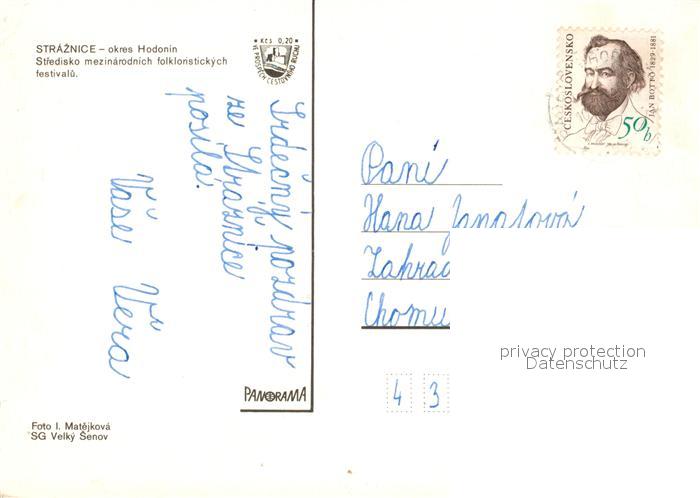 STRÁŽNICE – okres Hodonín
Středisko mezinárodních folkloristických
festivalů.
Kčs 0,20
VE PROSPĚCH CESTOVNÍHO RUCHU
Srdečný pozdrav
ze Strážnice
posílá.
Vaše Věra
PANORAMA
Foto I. Matějková
SG Velký Šenov
ČESKOSLOVENSKO
JAN BOTTO 1829-1881
50h
Paní
Hana
Zahrad
Chomu
privacy protection
Datenschutz
4 3